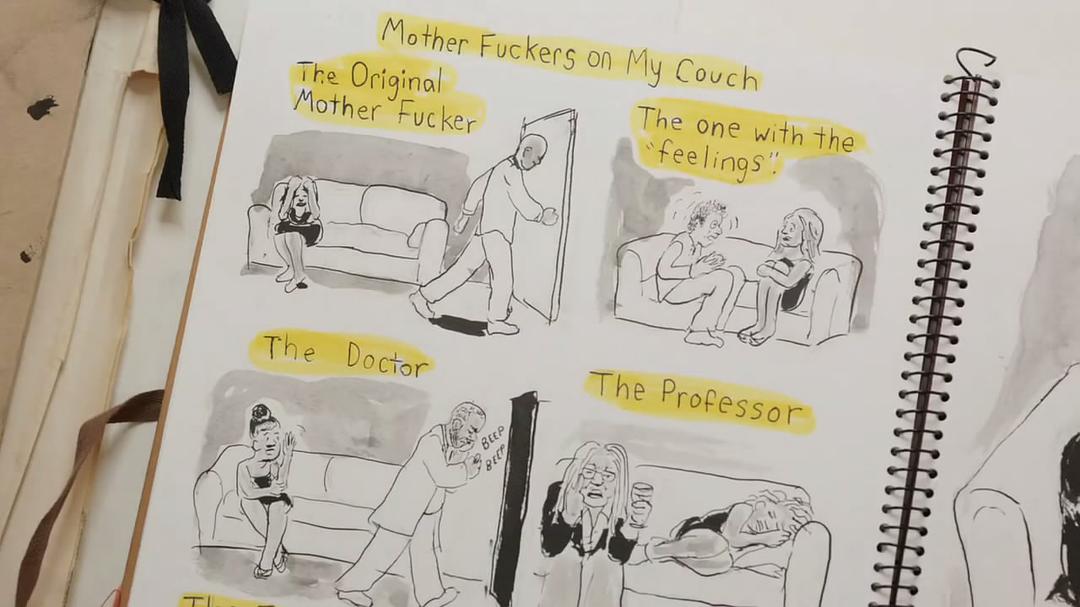 Mother Fuckers on My Couch
The Original
Mother Fucker
The one with the
"feelings".
The Doctor
BEEP
BEEP
The Professor